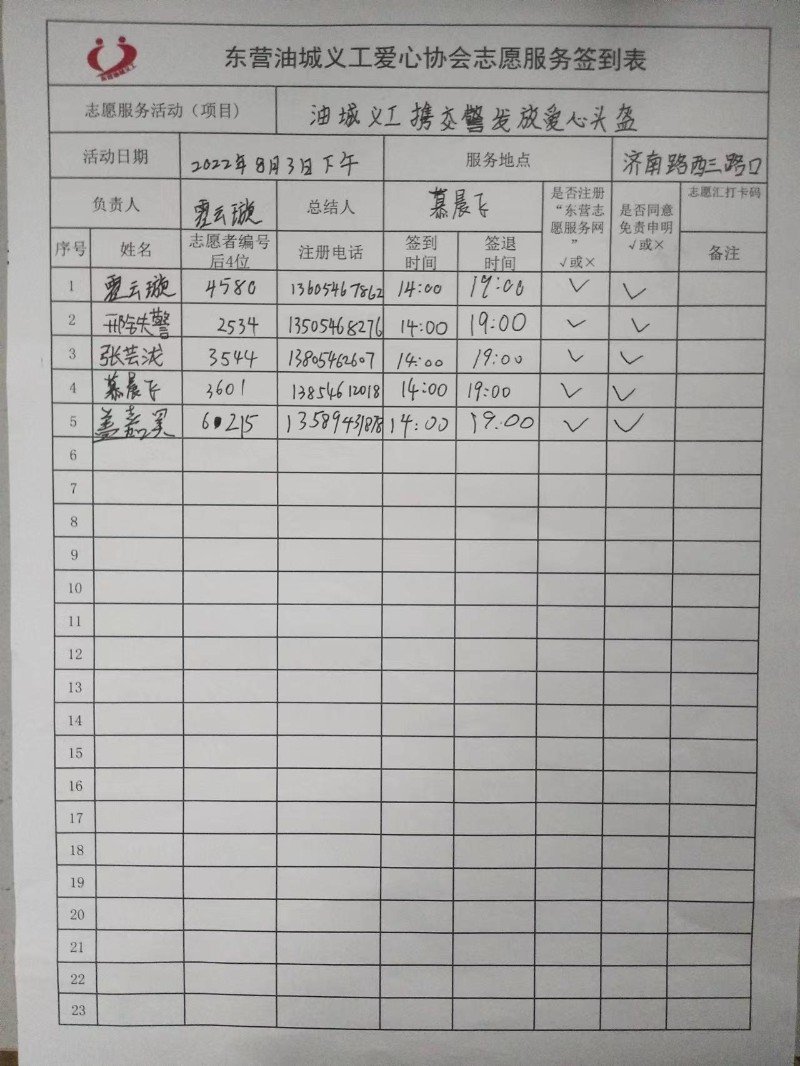 东营油城义工
东营油城义工爱心协会志愿服务签到表
志愿服务活动（项目） 油城义工携交警发放爱心头盔
活动日期 2022年8月3日下午 服务地点 济南路西三路口
负责人 霍云璇 总结人 慕晨飞 是否注册“东营志愿服务网” √或× 是否同意免责申明 √或× 志愿汇打卡码
序号 姓名 志愿者编号后4位 注册电话 签到时间 签退时间 备注
1 霍云璇 4580 13605467862 14:00 19:00 √ √
2 邢铁警 2534 13505468276 14:00 19:00 √ √
3 张芸泷 3544 13805462607 14:00 19:00 √ √
4 慕晨飞 3601 13854612018 14:00 19:00 √ √
5 盖嘉昊 6215 13589431878 14:00 19:00 √ √
6
7
8
9
10
11
12
13
14
15
16
17
18
19
20
21
22
23